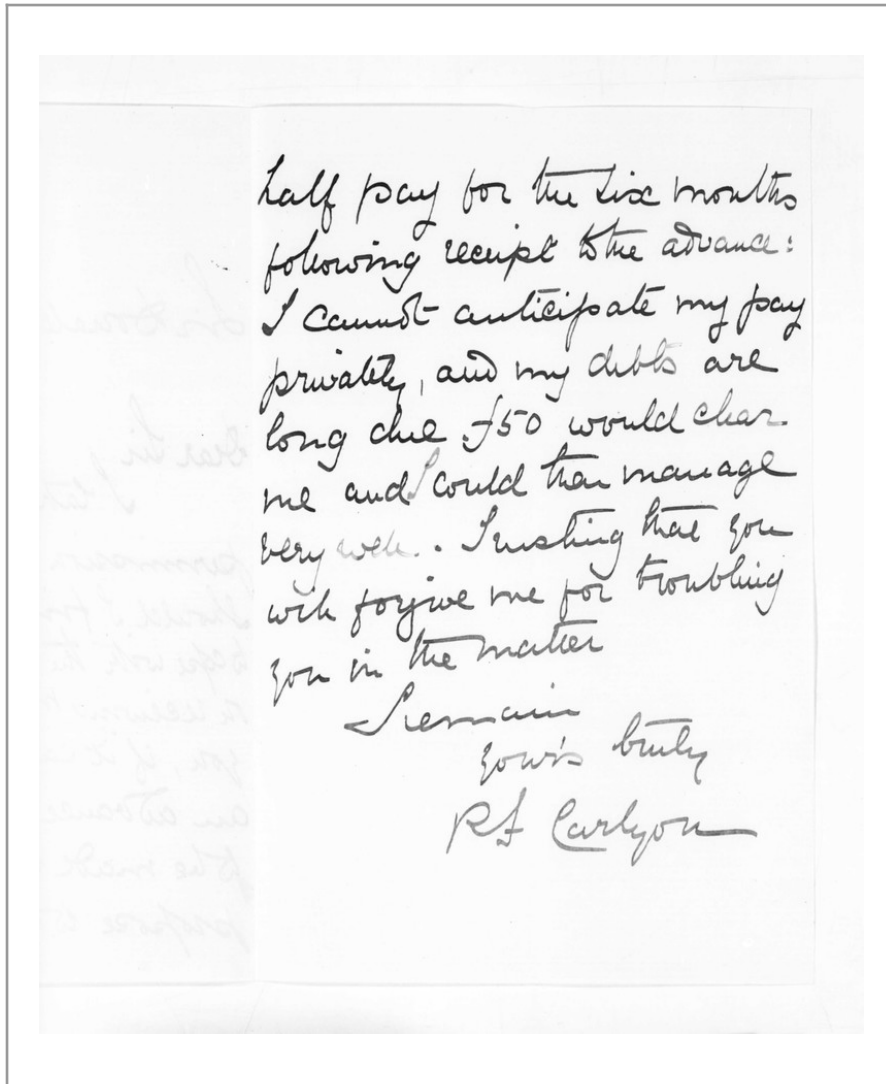 half pay for the six months
following receipt to the advance:
I cannot anticipate my pay
privately, and my debts are
long due. £50 would clear
me and I could then manage
very well. . Trusting that you
will forgive me for troubling
you in the matter
I remain
yours truly
R F Carlyon
Dear Sir,